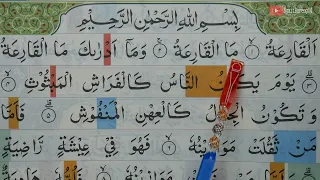 بِسْمِ اللهِ الرَّحْمٰنِ الرَّحِيْمِ
اَلْقَارِعَةُ ١ مَا الْقَارِعَةُ ٢ وَمَآ اَدْرٰىكَ مَا الْقَارِعَةُ
٣ يَوْمَ يَكُوْنُ النَّاسُ كَالْفَرَاشِ الْمَبْثُوْثِ ٤
وَتَكُوْنُ الْجِبَالُ كَالْعِهْنِ الْمَنْفُوْشِ ٥ فَاَمَّا
مَنْ ثَقُلَتْ مَوَازِيْنُهٗ ٦ فَهُوَ فِيْ عِيْشَةٍ رَّاضِيَةٍ